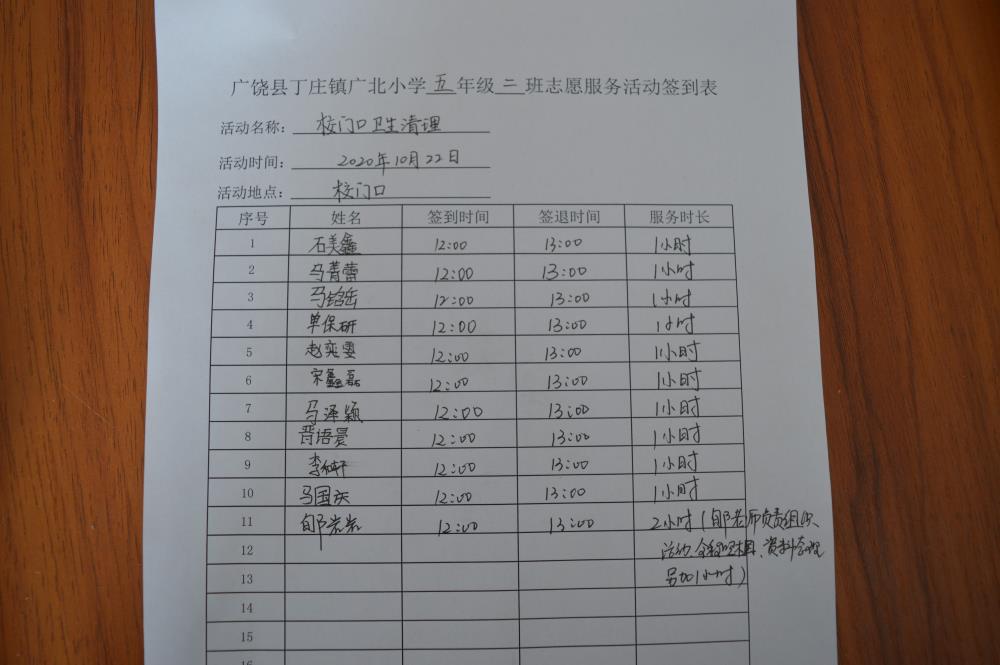 广饶县丁庄镇广北小学五年级二班志愿服务活动签到表
活动名称: 校门口卫生清理
活动时间: 2020年10月22日
活动地点: 校门口
序号 姓名 签到时间 签退时间 服务时长
1 石美鑫 12:00 13:00 1小时
2 马菁蕾 12:00 13:00 1小时
3 马铭岳 12:00 13:00 1小时
4 单保研 12:00 13:00 1小时
5 赵奕雯 12:00 13:00 1小时
6 宋鑫磊 12:00 13:00 1小时
7 马泽颖 12:00 13:00 1小时
8 晋语晨 12:00 13:00 1小时
9 李 12:00 13:00 1小时
10 马国庆 12:00 13:00 1小时
11 郇岩岩 12:00 13:00 2小时(郇老师负责组织、
12 活动全程照相、资料整理
13 另加1小时)
14
15
16